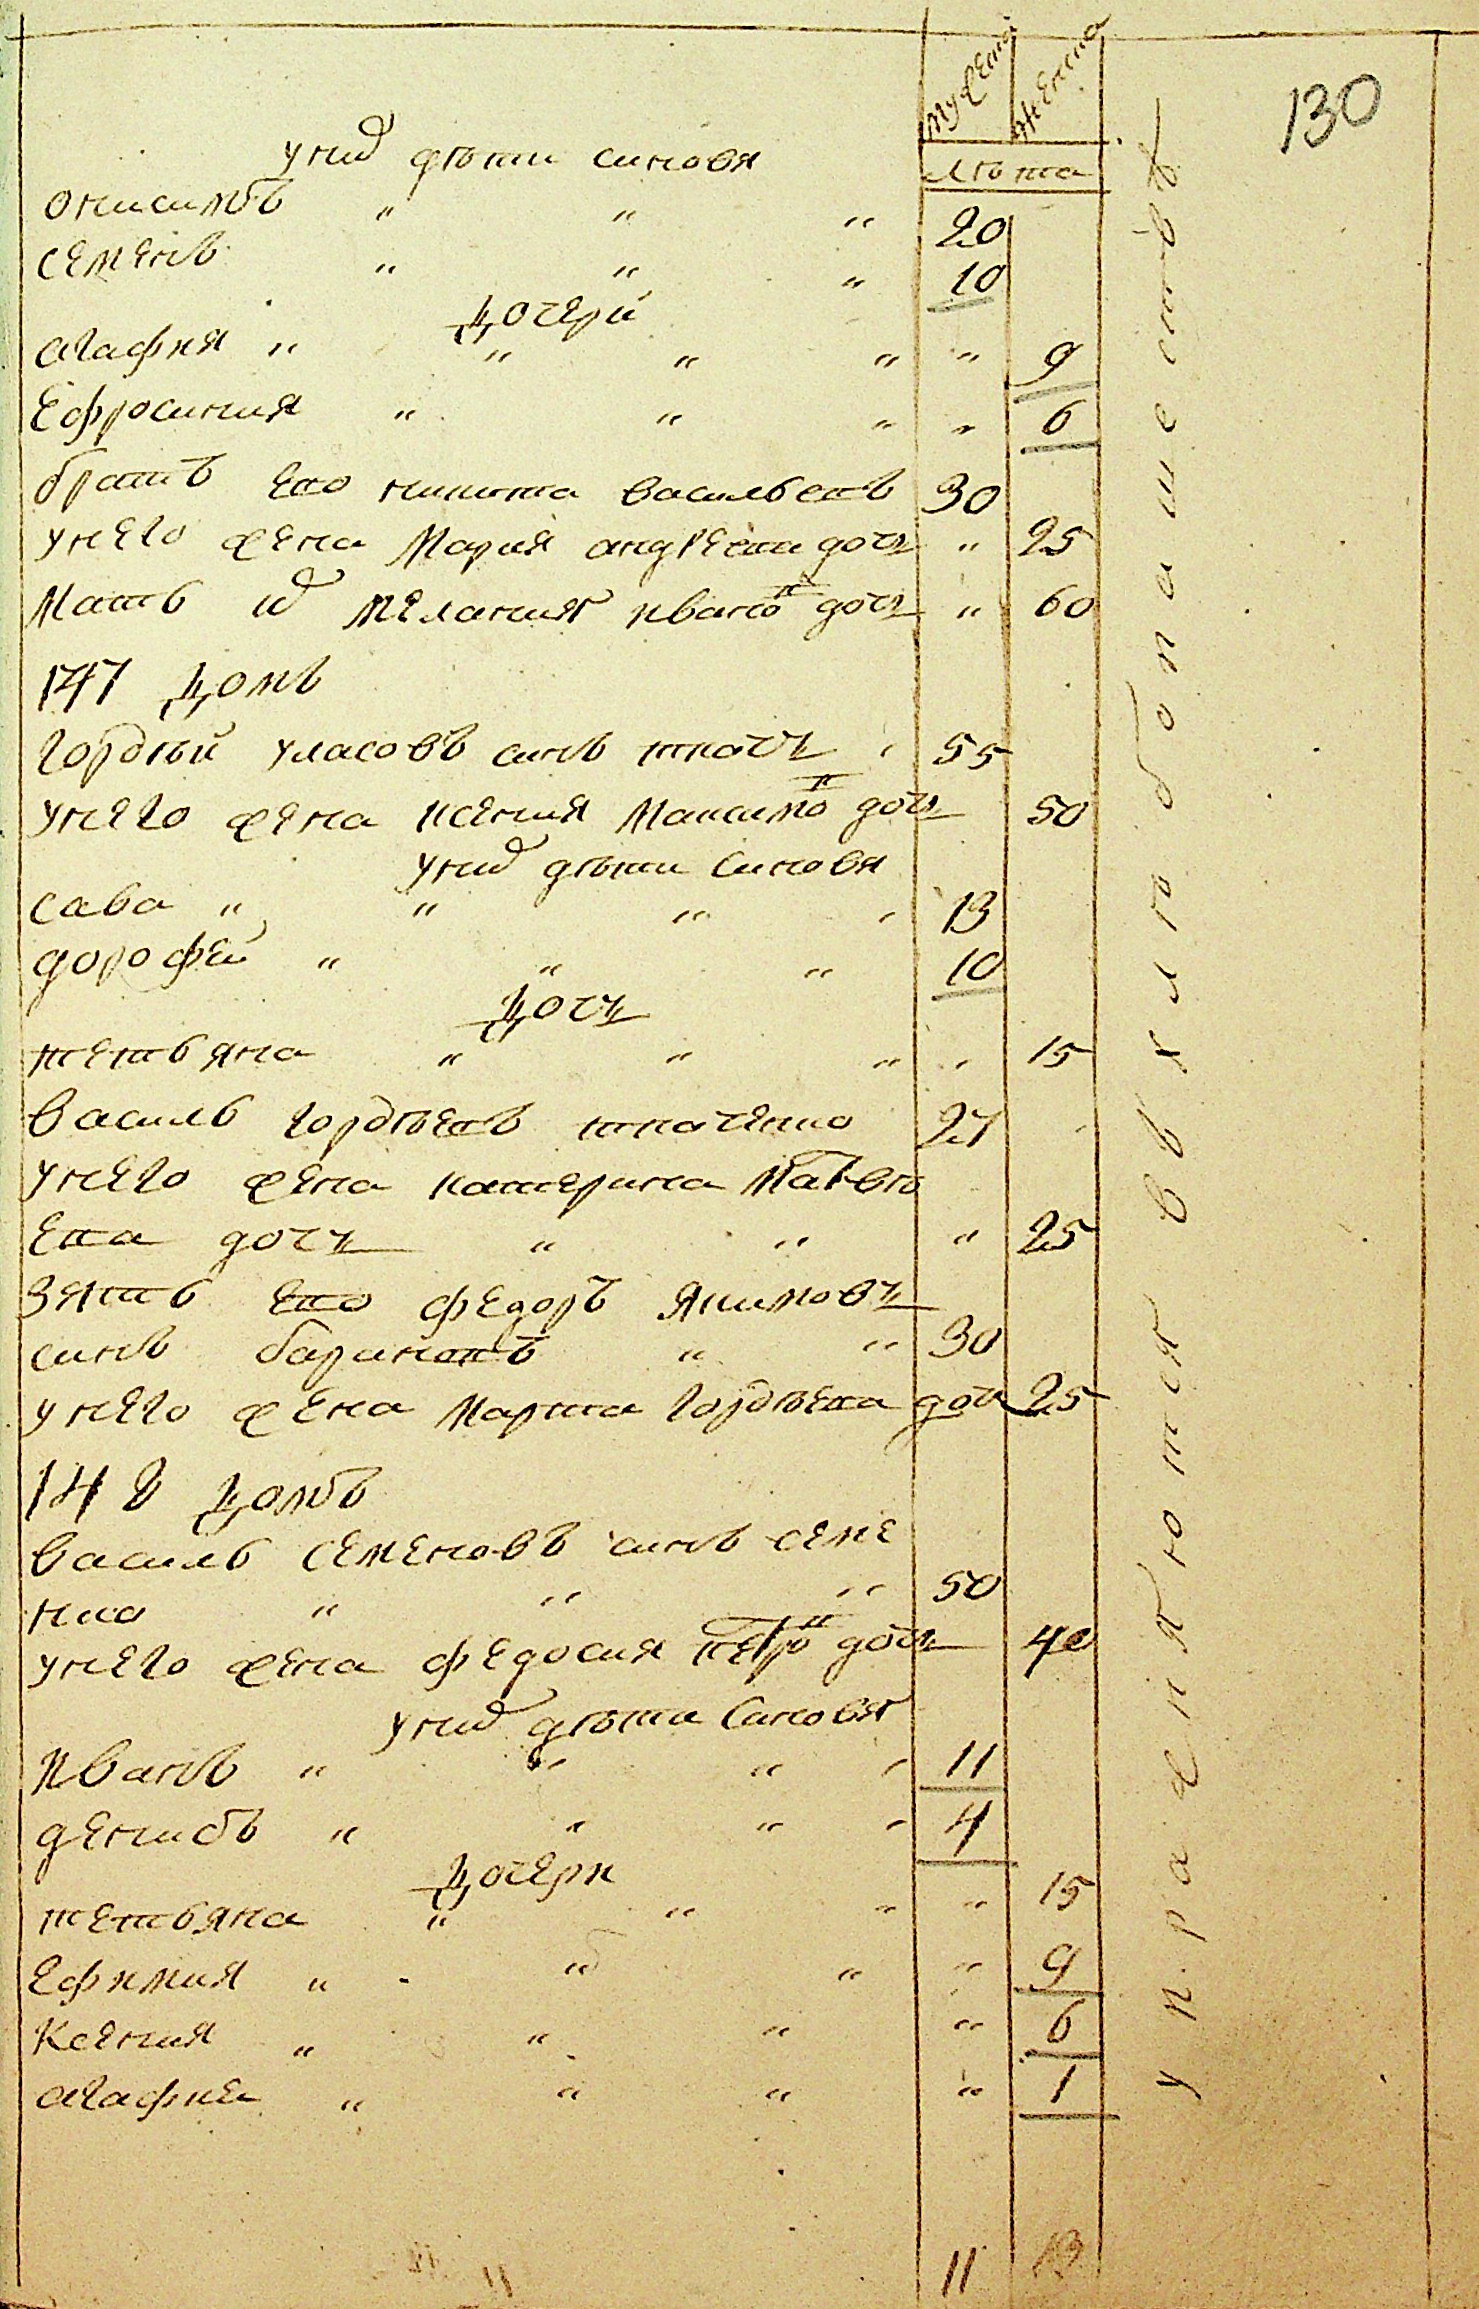 130
мужеска женска
лѣта
у них дѣти синовя
Онисимъ " " " 20
Семенъ " " " 10
Дочери
Агафия " " " " " 9
Ефросиния " " " " 6
братъ его никита васильевъ 30
у него жена Мария андреева дочь " 25
Мать их Мелания Ивано дочь " 60
147 Домъ
Гордѣй уласовъ синъ ткачь 55
у него жена Ксения Максимо дочь 50
у них дѣти синовя
Сава " " " " 13
Дорофей " " " 10
Дочь
тетьяна " " " " 15
Василь Гордѣевъ ткаченко 27
у него жена катерина Матвѣ
ева дочь " " " 25
Зять его федоръ Якимовъ
синъ бариновъ " " 30
у него жена Марфа Гордѣева дочь 25
148 Домъ
Василь Семеновъ синъ семе
нко " " " 50
у него жена федосия петро дочь 40
у них дѣти Синовя
Иванъ " " " " 11
Денисъ " " " " 4
Дочери
тетьяна " " " " 15
Ефимия " " " " 9
Ксения " " " " 6
Агафия " " " " 1
11 13
упражняются въ хлѣбопашествѣ